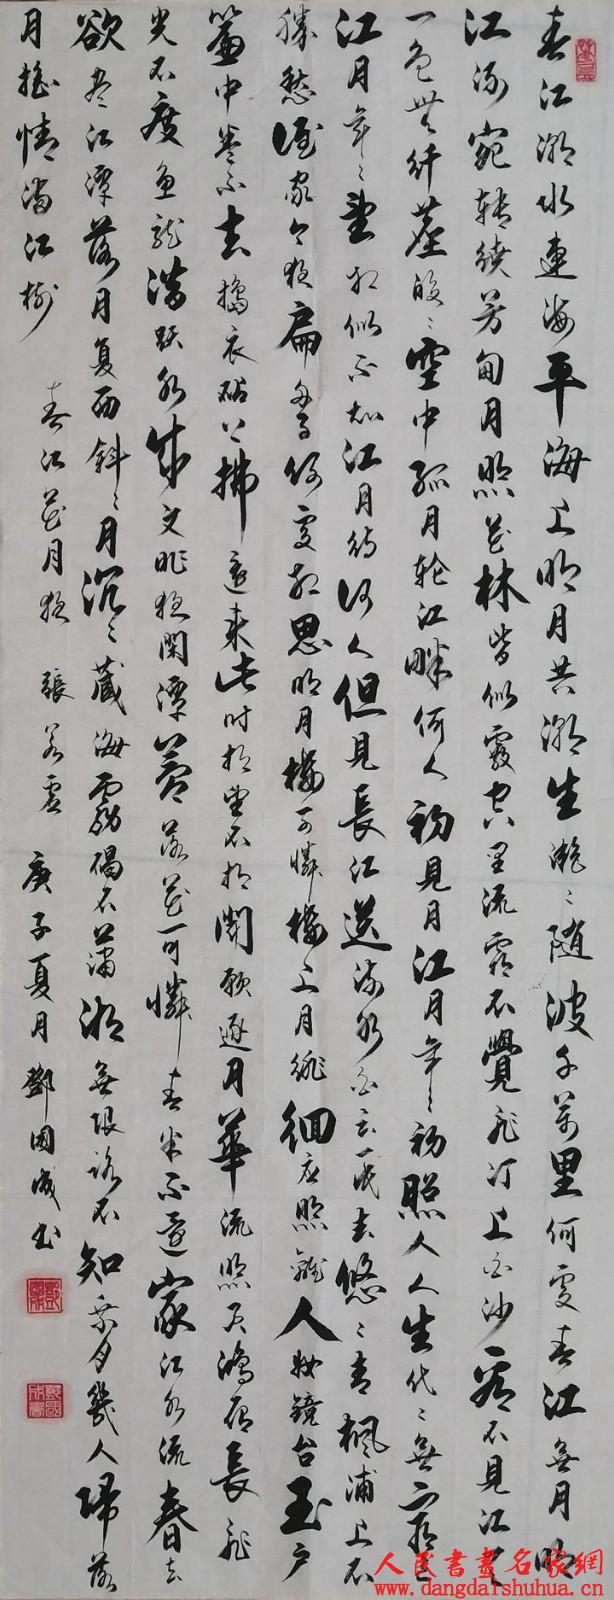 春江潮水連海平海上明月共潮生灩〻随波千萬里何處春江無月明
江流宛轉繞芳甸月照花林皆似霰空里流霜不覺飛汀上白沙看不見江天
一色無纤塵皎〻空中孤月轮江畔何人初見月江月年〻初照人人生代〻無窮已
江月年〻望相似不知江月待何人但見長江送流水白云一片去悠〻青楓浦上不
勝愁誰家今夜扁舟子何處相思明月樓可憐樓上月徘徊應照離人妝鏡台玉户
簾中卷不去搗衣砧上拂還来此時相望不相聞願逐月華流照君鴻雁長飛
光不度魚龍潜跃水成文昨夜閑潭夢落花可憐春半不還家江水流春去
欲盡江潭落月复西斜〻月沉〻藏海霧碣石瀟湘無限路不知乘月幾人歸落
月摇情满江樹 春江花月夜 張若虚 庚子夏月鄧國成书
人民書畫名家網
www.dangdaishuhua.cn